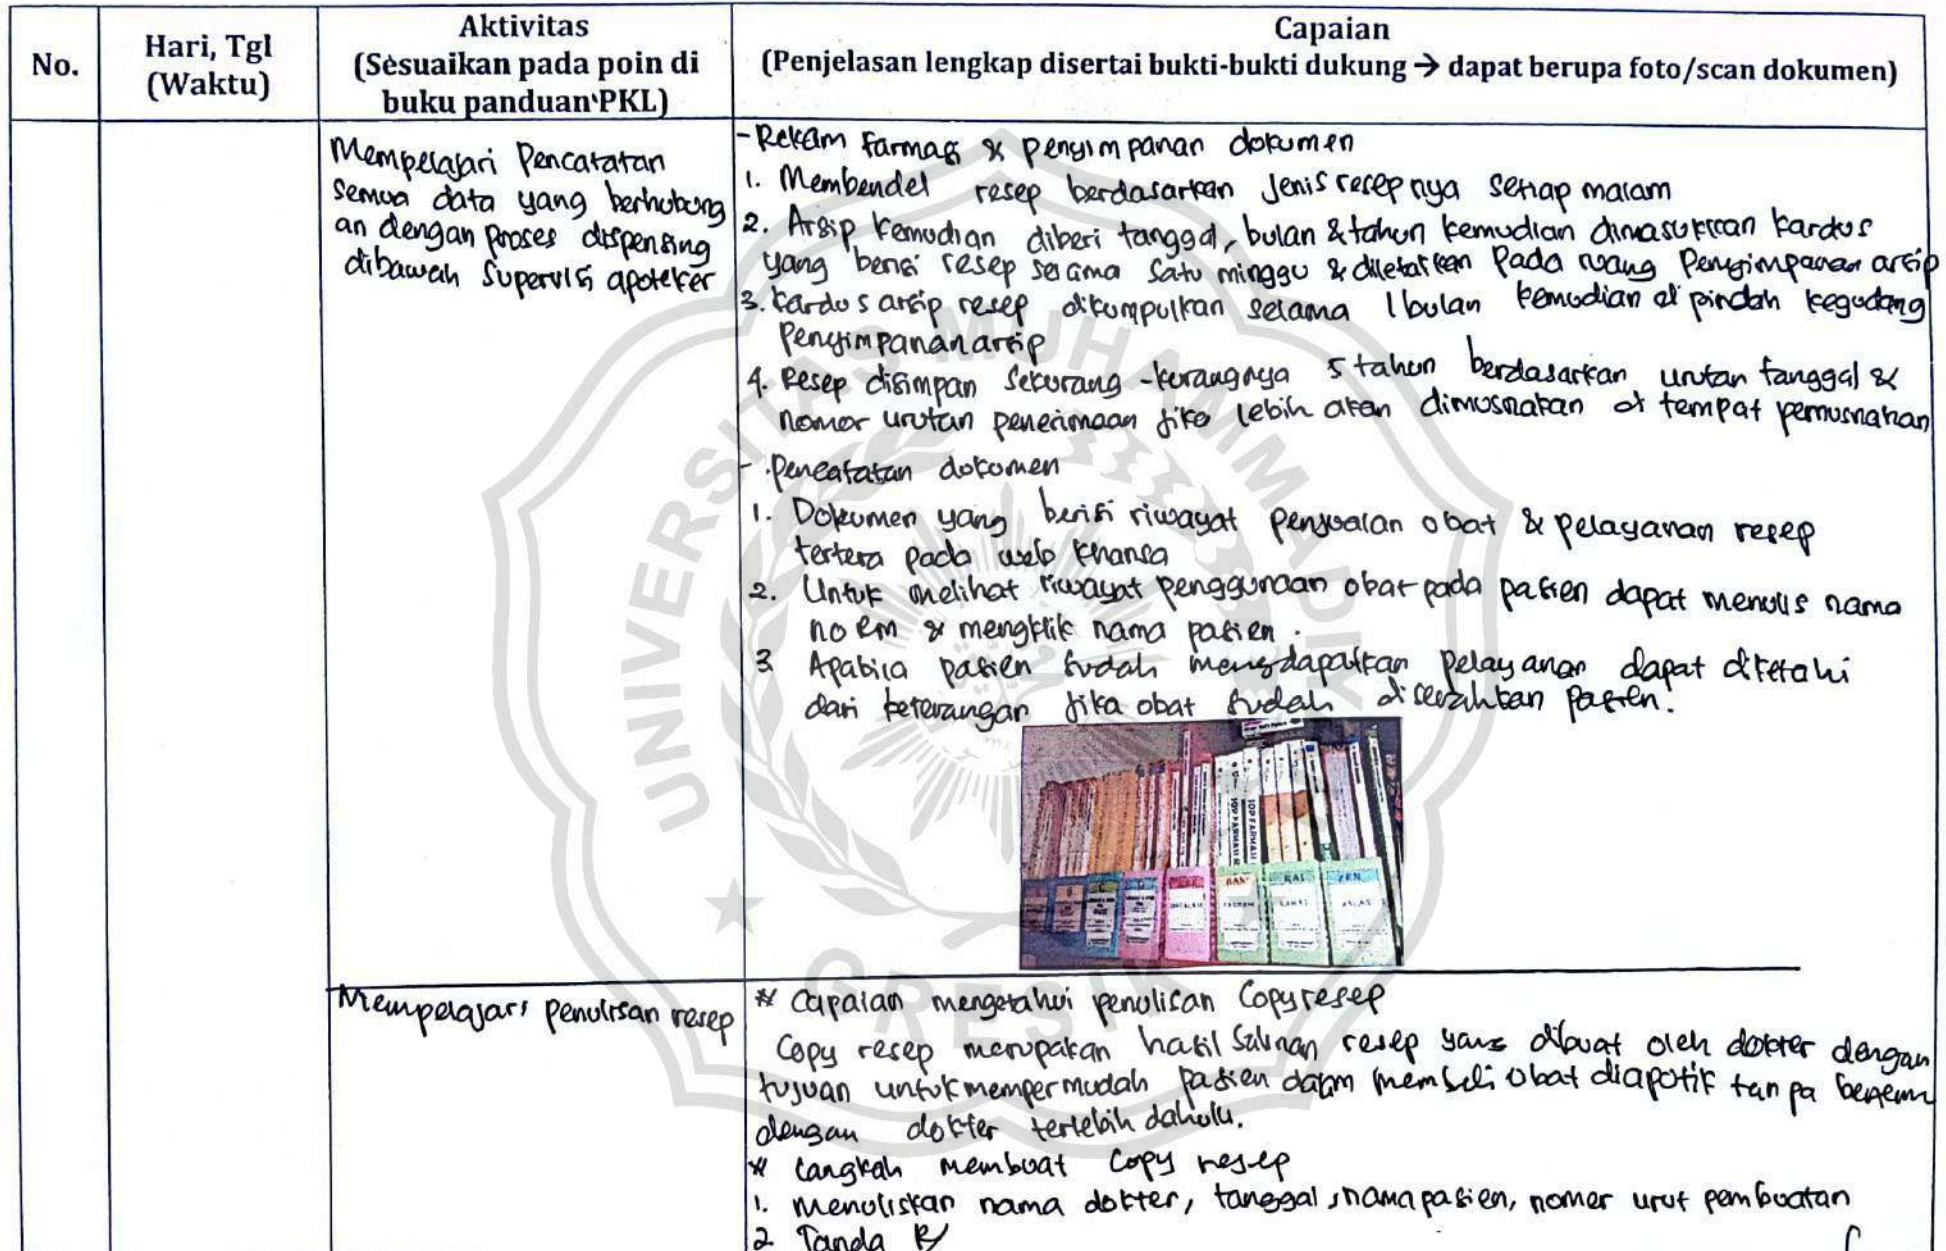 No.
Hari, Tgl
(Waktu)
Aktivitas
(Sesuaikan pada poin di
buku panduan PKL)
Capaian
(Penjelasan lengkap disertai bukti-bukti dukung → dapat berupa foto/scan dokumen)
Mempelajari Pencatatan
semua data yang berhubung
an dengan proses dispensing
dibawah Supervisi apoteker
- Rekam farmasi & penyimpanan dokumen
1. Membendel resep berdasarkan Jenis resepnya setiap malam
2. Arsip kemudian diberi tanggal, bulan & tahun kemudian dimasukkan kardus
yang berisi resep selama satu minggu & diletakkan Pada ruang Penyimpanan arsip
3. kardus arsip resep dikumpulkan selama 1 bulan kemudian di pindah kegudang
Penyimpanan arsip
4. Resep disimpan sekurang-kurangnya 5 tahun berdasarkan urutan tanggal &
nomor urutan penerimaan jika lebih akan dimusnakan di tempat pemusnahan
- Pencatatan dokumen
1. Dokumen yang berisi riwayat penjualan obat & pelayanan resep
tertera pada web khansa
2. Untuk melihat riwayat penggunaan obat pada pasien dapat menulis nama
no RM & mengklik nama pasien.
3 Apabila pasien sudah mengdapatkan pelayanan dapat diketahi
dari keterangan jika obat sudah diserahkan pasien.
SOP FARMASI
SOP FARMASI
Mempelajari Penulisan resep
* Capaian mengetahui penulisan Copy resep
Copy resep merupakan hasil Salinan resep yang dibuat oleh dokter dengan
tujuan untuk mempermudah pasien dalam membeli obat diapotik tanpa bertemu
dengan dokter terlebih dahulu.
* Langkah membuat Copy resep
1. Menuliskan nama dokter, tanggal, nama pasien, nomer urut pembuatan
2 Tanda R/
UNIVERSITAS MUHAMMADIYAH
GRESIK